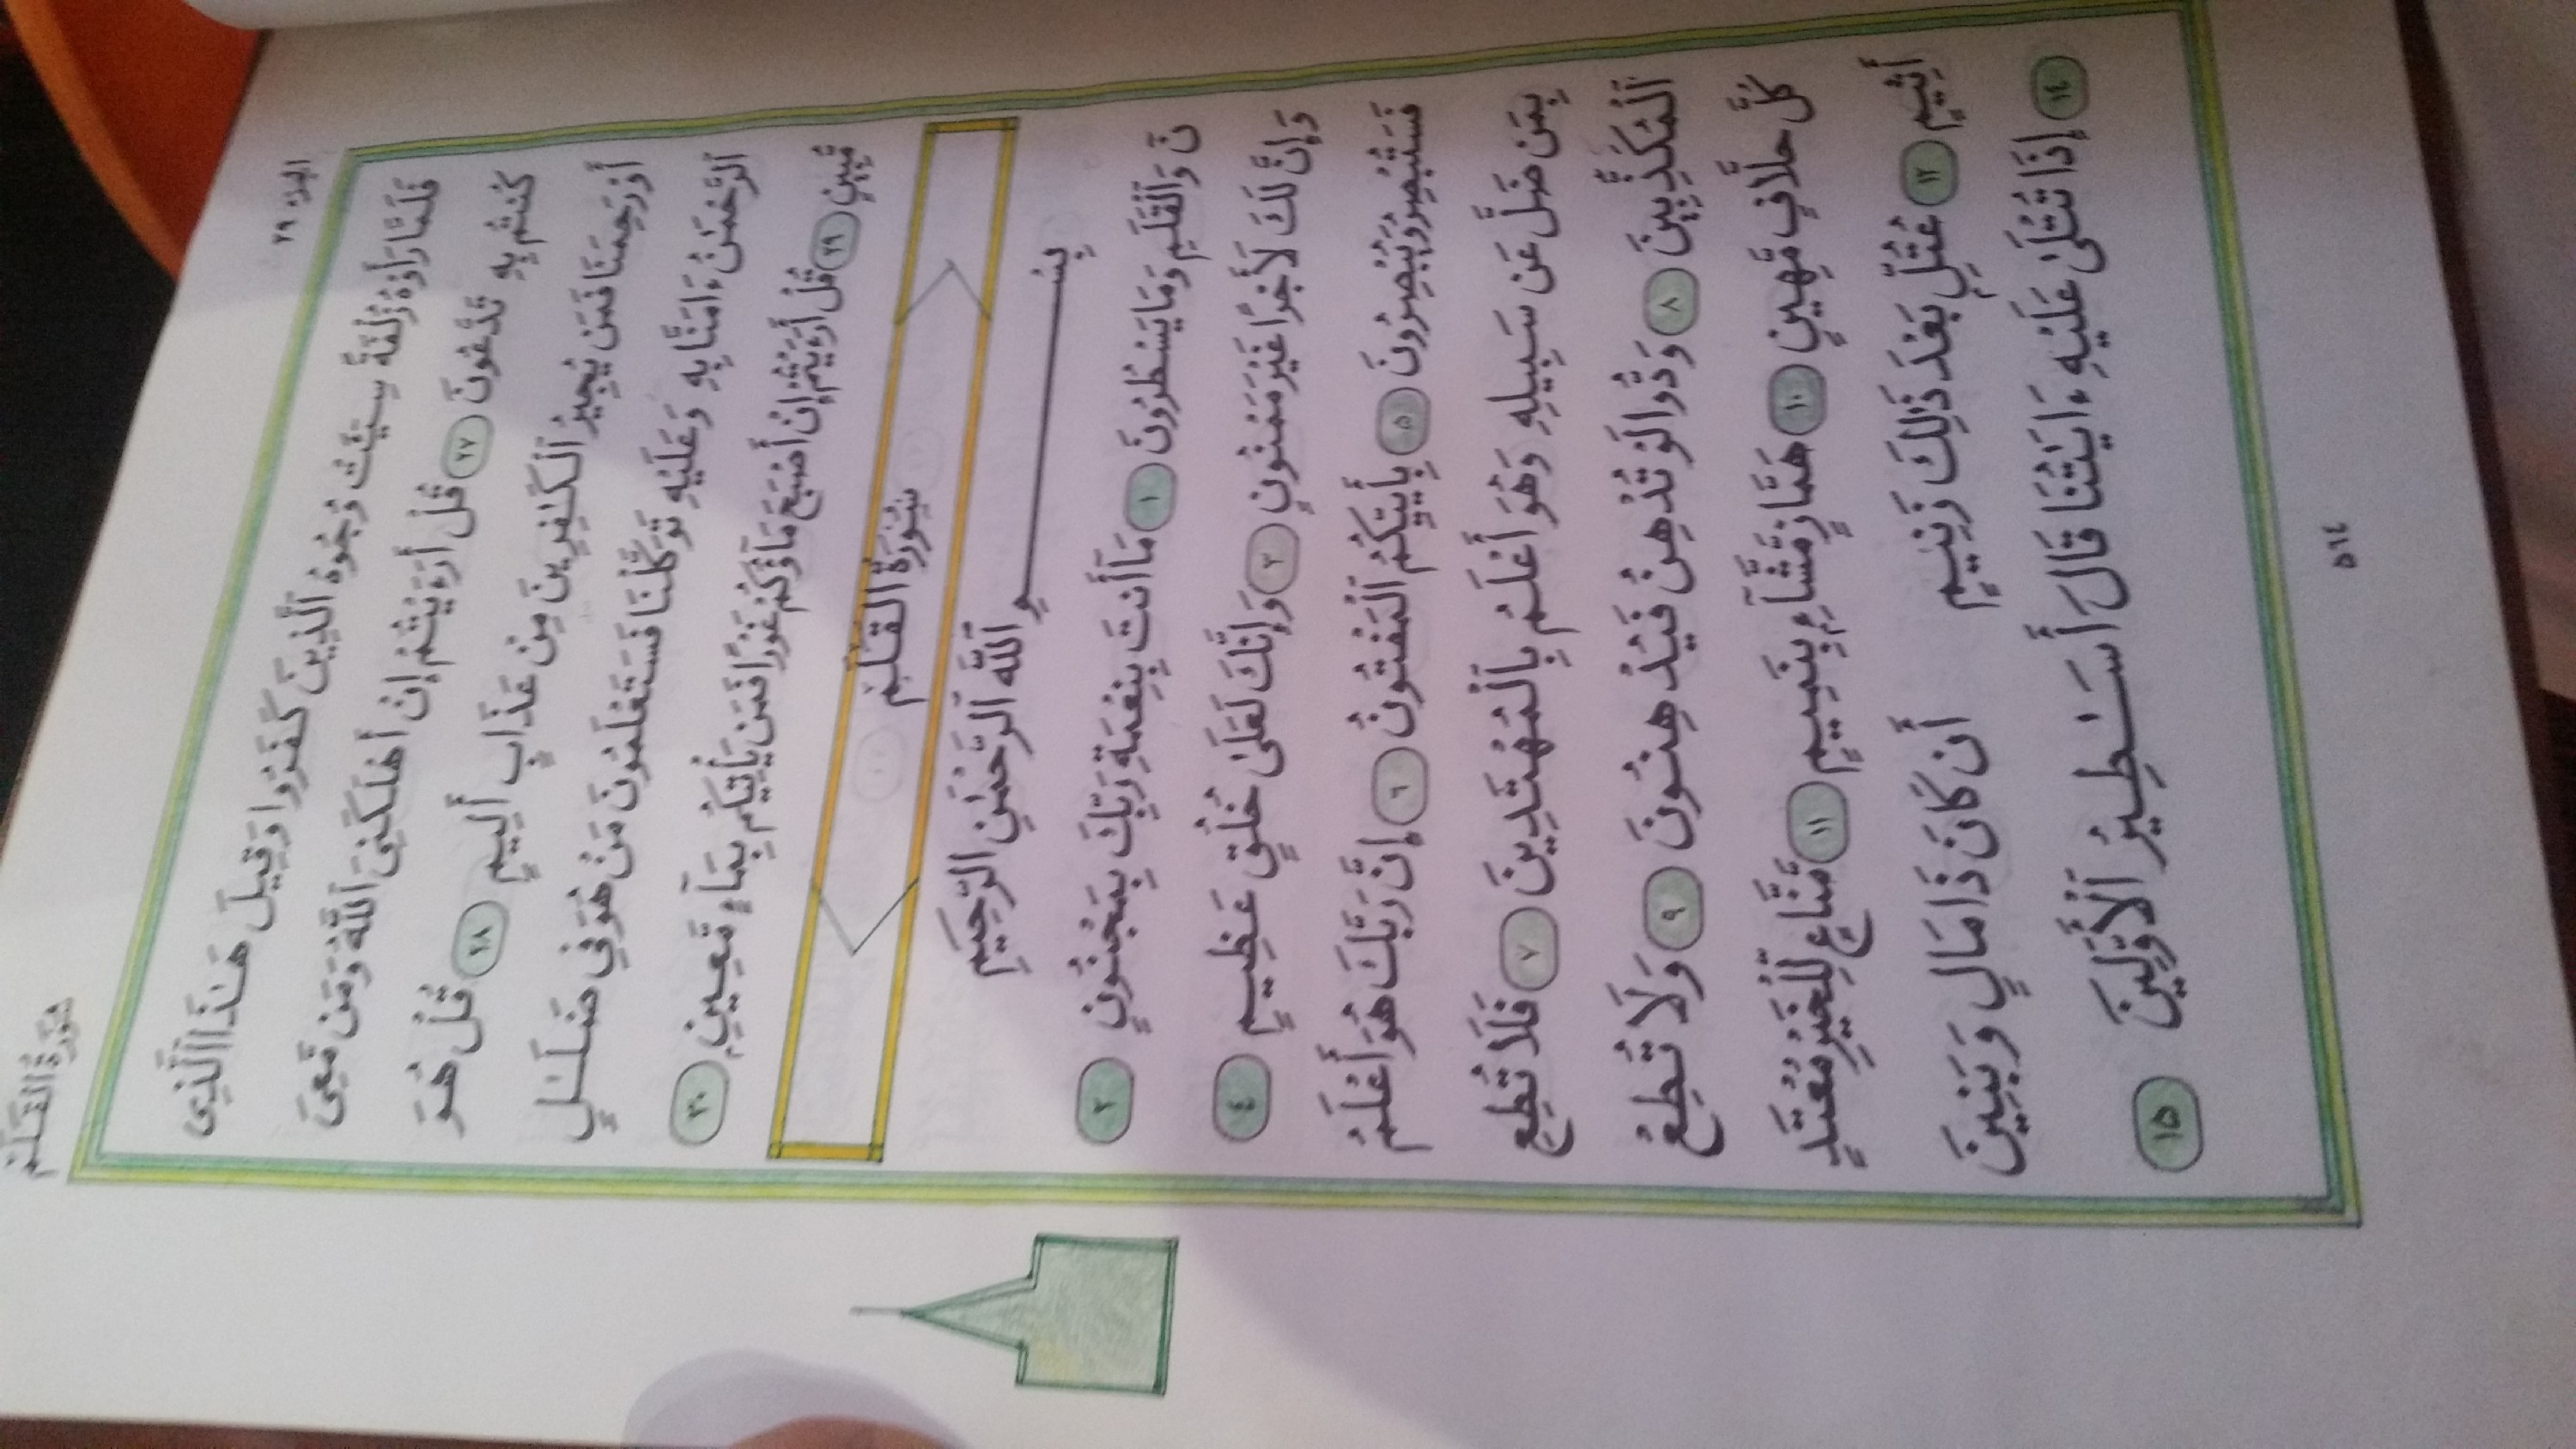 سُورَةُ القَلَمْ
الجزء ٢٩
فَلَمَّا رَأَوْهُ زُلْفَةً سِيٓـَٔتْ وُجُوهُ ٱلَّذِينَ كَفَرُوا وَقِيلَ هَـٰذَا ٱلَّذِى
كُنتُم بِهِ تَدَّعُونَ ٢٧ قُلْ أَرَءَيْتُمْ إِنْ أَهْلَكَنِىَ ٱللَّهُ وَمَن مَّعِىَ
أَوْ رَحِمَنَا فَمَن يُجِيرُ ٱلْكَـٰفِرِينَ مِنْ عَذَابٍ أَلِيمٍ ٢٨ قُلْ هُوَ
ٱلرَّحْمَـٰنُ ءَامَنَّا بِهِ وَعَلَيْهِ تَوَكَّلْنَا فَسَتَعْلَمُونَ مَنْ هُوَ فِي ضَلَـٰلٍ
مُّبِينٍ ٢٩ قُلْ أَرَءَيْتُمْ إِنْ أَصْبَحَ مَآؤُكُمْ غَوْرًا فَمَن يَأْتِيكُم بِمَآءٍ مَّعِينٍ ٣٠
سُورَةُ القَلَمْ
بِسْمِ ٱللَّهِ ٱلرَّحْمَـٰنِ الرَّحِيمِ
نٓ وَٱلْقَلَمِ وَمَا يَسْطُرُونَ ١ مَآ أَنتَ بِنِعْمَةِ رَبِّكَ بِمَجْنُونٍ ٢
وَإِنَّ لَكَ لَأَجْرًا غَيْرَ مَمْنُونٍ ٣ وَإِنَّكَ لَعَلَىٰ خُلُقٍ عَظِيمٍ ٤
فَسَتُبْصِرُ وَيُبْصِرُونَ ٥ بِأَييِّكُمُ ٱلْمَفْتُونُ ٦ إِنَّ رَبَّكَ هُوَ أَعْلَمُ
بِمَن ضَلَّ عَن سَبِيلِهِ وَهُوَ أَعْلَمُ بِٱلْمُهْتَدِينَ ٧ فَلَا تُطِعِ
ٱلْمُكَذِّبِينَ ٨ وَدُّوا لَوْ تُدْهِنُ فَيُدْهِنُونَ ٩ وَلَا تُطِعْ
كُلَّ حلَّافٍ مَّهِينٍ ١٠ هَمَّازٍ مَّشَّآءٍ بِنَمِيمٍ ١١ مَّنَّاعٍ لِّلْخَيْرِ مُعْتَدٍ
أَثِيمٍ ١٢ عُتُلٍّ بَعْدَ ذَٰلِكَ زَنِيمٍ أَن كَانَ ذَا مَالٍ وَبَنِينَ
١٤ إِذَا تُتْلَىٰ عَلَيْهِ ءَايَـٰتُنَا قَالَ أَسَـٰطِيرُ ٱلْأَوَّلِينَ ١٥
٥٦٤